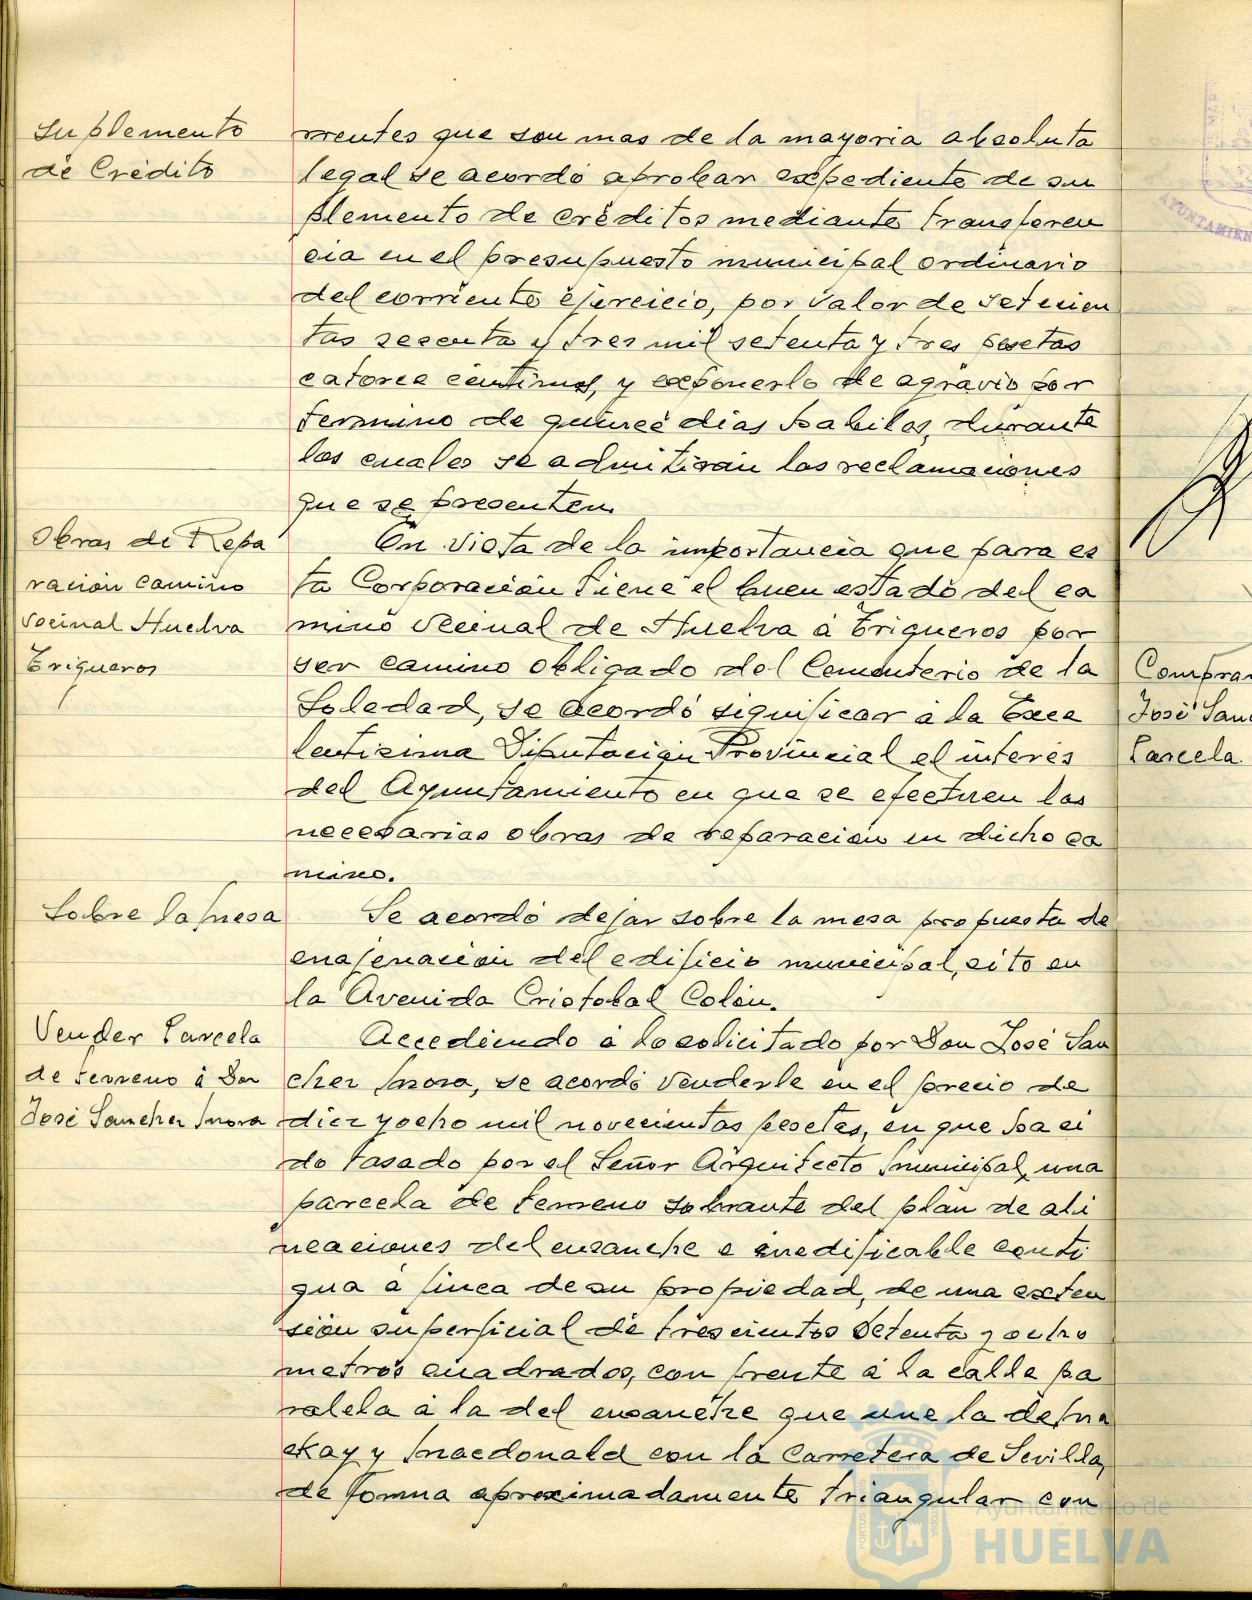 Suplemento
de Crédito
rrentes que son mas de la mayoria absoluta
legal se acordó aprobar expediente de su
plemento de créditos mediante transferen
cia en el presupuesto municipal ordinario
del corriente ejercicio, por valor de setecien
tas sesenta y tres mil setenta y tres pesetas
catorce céntimos, y exponerlo de agravio por
termino de quince dias habiles, durante
los cuales se admitirán las reclamaciones
que se presenten.
Obras de Repa
ración camino
vecinal Huelva
Trigueros
En vista de la importancia que para es
ta Corporación tiene el buen estado del ca
mino vecinal de Huelva á Trigueros por
ser camino obligado del Cementerio de la
Soledad, se acordó significar á la Exce
lentisima Diputación Provincial el interés
del Ayuntamiento en que se efectuen las
necesarias obras de reparación en dicho ca
mino.
Sobre la mesa
Se acordó dejar sobre la mesa propuesta de
enajenación del edificio municipal, sito en
la Avenida Cristobal Colón.
Vender Parcela
de terreno á Don
José Sanchez Mora
Accediendo á lo solicitado por Don José San
chez Mora, se acordó venderle en el precio de
diez y ocho mil novecientas pesetas, en que ha si
do tasado por el Señor Arquitecto Municipal, una
parcela de terreno sobrante del plan de ali
neaciones del ensanche e inedificable conti
gua á finca de su propiedad, de una exten
sión superficial de trescientos setenta y ocho
metros cuadrados, con frente á la calle pa
ralela á la del ensanche que une la de Ma
ckay y Macdonald con la Carretera de Sevilla,
de forma aproximadamente triangular con
Comprar
José San
Parcela
AYUNTAMIEN
Ayuntamiento de
HUELVA